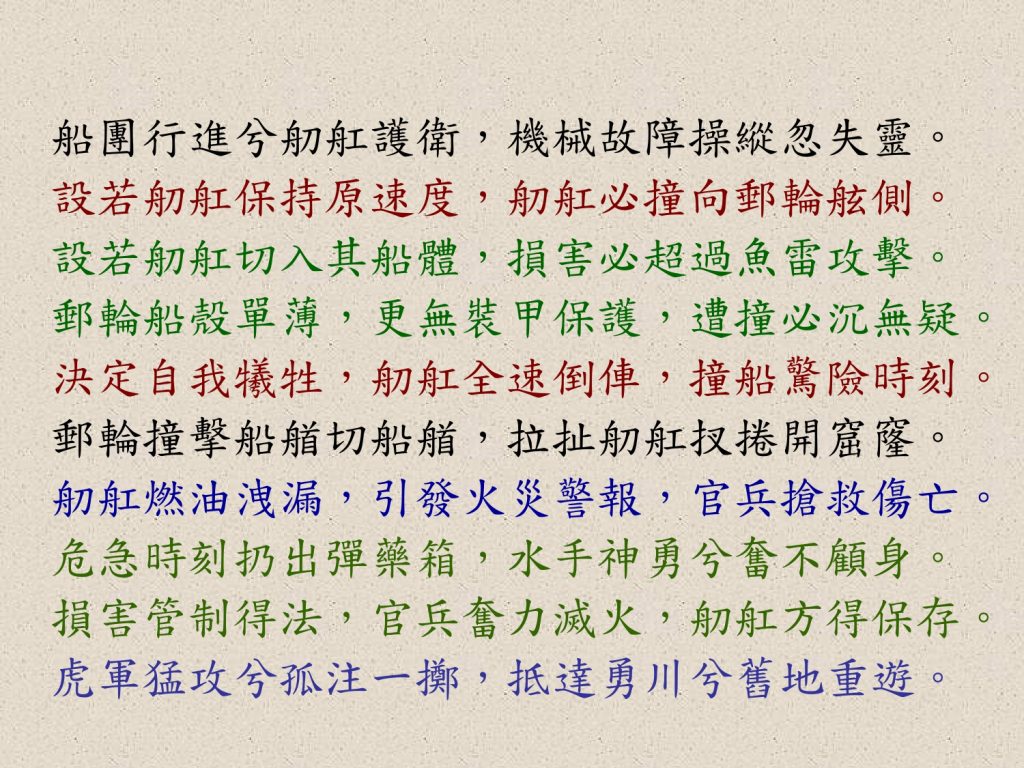 船團行進兮舠舡護衛，機械故障操縱忽失靈。
設若舠舡保持原速度，舠舡必撞向郵輪舷側。
設若舠舡切入其船體，損害必超過魚雷攻擊。
郵輪船殼單薄，更無裝甲保護，遭撞必沉無疑。
決定自我犧牲，舠舡全速倒俥，撞船驚險時刻。
郵輪撞擊船艏切船艏，拉扯舠舡扠捲開窟窿。
舠舡燃油洩漏，引發火災警報，官兵搶救傷亡。
危急時刻扔出彈藥箱，水手神勇兮奮不顧身。
損害管制得法，官兵奮力滅火，舠舡方得保存。
虎軍猛攻兮孤注一擲，抵達勇川兮舊地重遊。